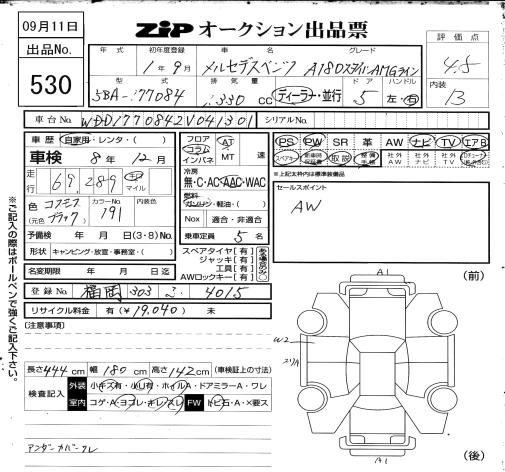 09月11日
ZIP オークション出品票
出品No.
530
年式 初年度登録 車名 グレード
1年9月 メルセデスベンツ A180スタイルAMGライン
型式 排気量 ドア ハンドル
5BA-177084 1,330 CC ディーラー・並行 5 左・右
評価点
4.5
内装
B
車台No. WDD1770842V041301 シリアルNo.
車歴 自家用・レンタ・( )
車検 8年12月
走行 69,289 キロ マイル
色 コスモスブラック (元色 ) カラーNo. 191 内装色
予備検 年 月 日(3・8)No.
形状 キャンピング・放宣・事務室・( )
名変期限 年 月 日迄
フロア コラム インパネ AT MT 速
冷房
無・C・AC・AAC・WAC
燃料
ガソリン・軽油・( )
Nox 適合・非適合
乗車定員 5名
スペアタイヤ [有]
ジャッキ [有]
工具 [有]
AWロックキー [有]
PS PW SR 革 AW ナビ TV エアB
スペアキー 新車時保証書 取説 整備手帳 社外AW 社外ナビ 社外TV
※上記太枠内は標準装備品
セールスポイント
AW
登録No. 福岡 303 4015
リサイクル料金 有(¥19,040) 未
[注意事項]
長さ444cm 幅180cm 高さ142cm (車検証上の寸法)
検査記入 外装 小キズ有・小凹有・ホイルA・ドアミラーA・ワレ
室内 コゲA・ヨゴレ・キレ・スレ FW トビ石・A・X要ス
アンダーカバークレ
※ご記入の際はボールペンで強くご記入下さい。
A1
(前)
W2
A1
(後)